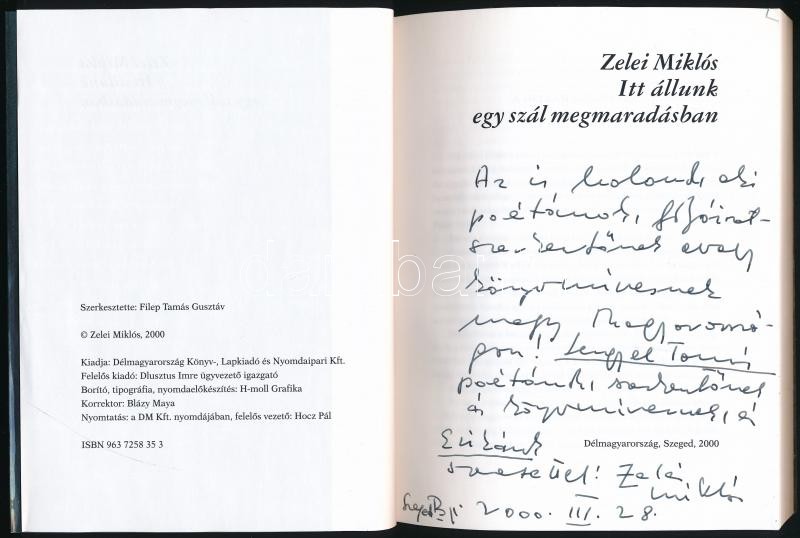 Szerkesztette: Filep Tamás Gusztáv
© Zelei Miklós, 2000
Kiadja: Délmagyarország Könyv-, Lapkiadó és Nyomdaipari Kft.
Felelős kiadó: Dlusztus Imre ügyvezető igazgató
Borító, tipográfia, nyomdaelőkészítés: H-moll Grafika
Korrektor: Blázy Maya
Nyomtatás: a DM Kft. nyomdájában, felelős vezető: Hocz Pál
ISBN 963 7258 35 3
Zelei Miklós
Itt állunk
egy szál megmaradásban
Az is bolond, aki
poétának, folyóirat-
szerkesztőnek avagy
könyvművesnek
megy Magyarorszá-
gon! Lengyel Tamás
poétának, szerkesztőnek
és könyvművesnek, és
szeretettel! Zelei
Miklós
2000. III. 28.
Délmagyarország, Szeged, 2000